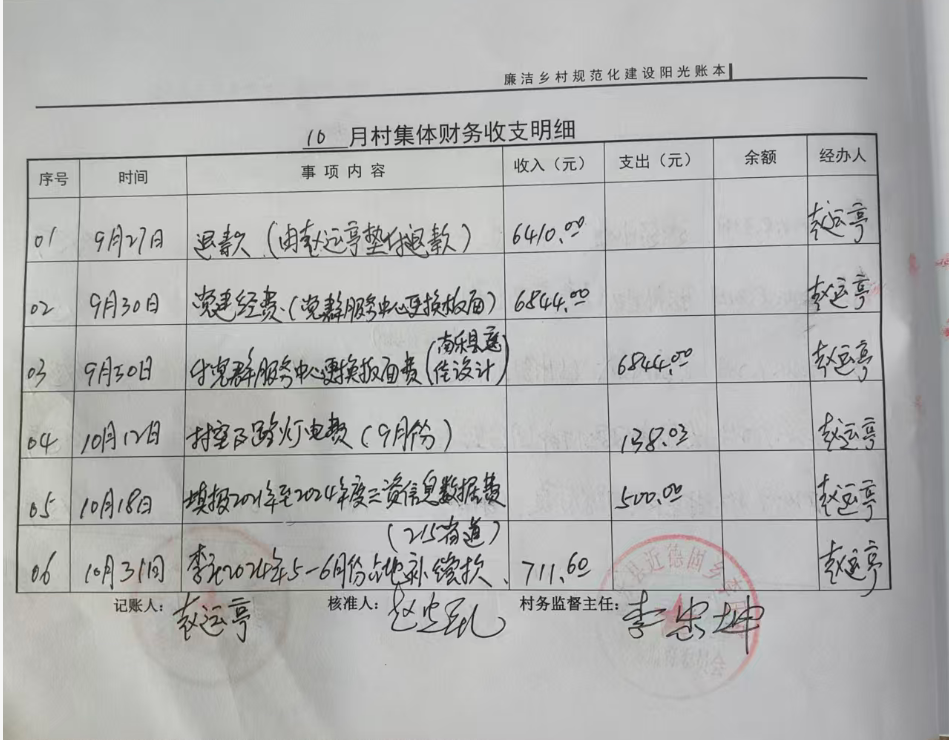 廉洁乡村规范化建设阳光账本
10 月村集体财务收支明细
序号 时间 事项内容 收入（元） 支出（元） 余额 经办人
01 9月27日 退款（由赵运亭垫付退款） 6410.00 赵运亭
02 9月30日 党建经费（党群服务中心更换板面） 6844.00 赵运亭
03 9月30日 付党群服务中心更换板面费（南乐县 佳设计） 6844.00 赵运亭
04 10月12日 村室及路灯电费（9月份） 138.03 赵运亭
05 10月18日 填报2021年至2024年度三资信息数据费 500.00 赵运亭
（215省道）
06 10月31日 2024年5-6月份占地补偿款 711.60 赵运亭
记账人：赵运亭 核准人：赵 村务监督主任：李忠坤
县近德固乡村